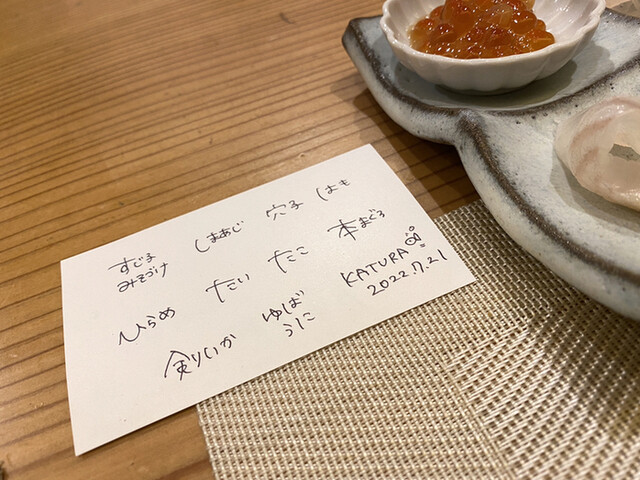 すじこ しまあじ 穴子 はも
みそづけ
ひらめ たい たこ 本まぐろ
剣いか ゆば KATURA
うに 2022.7.21